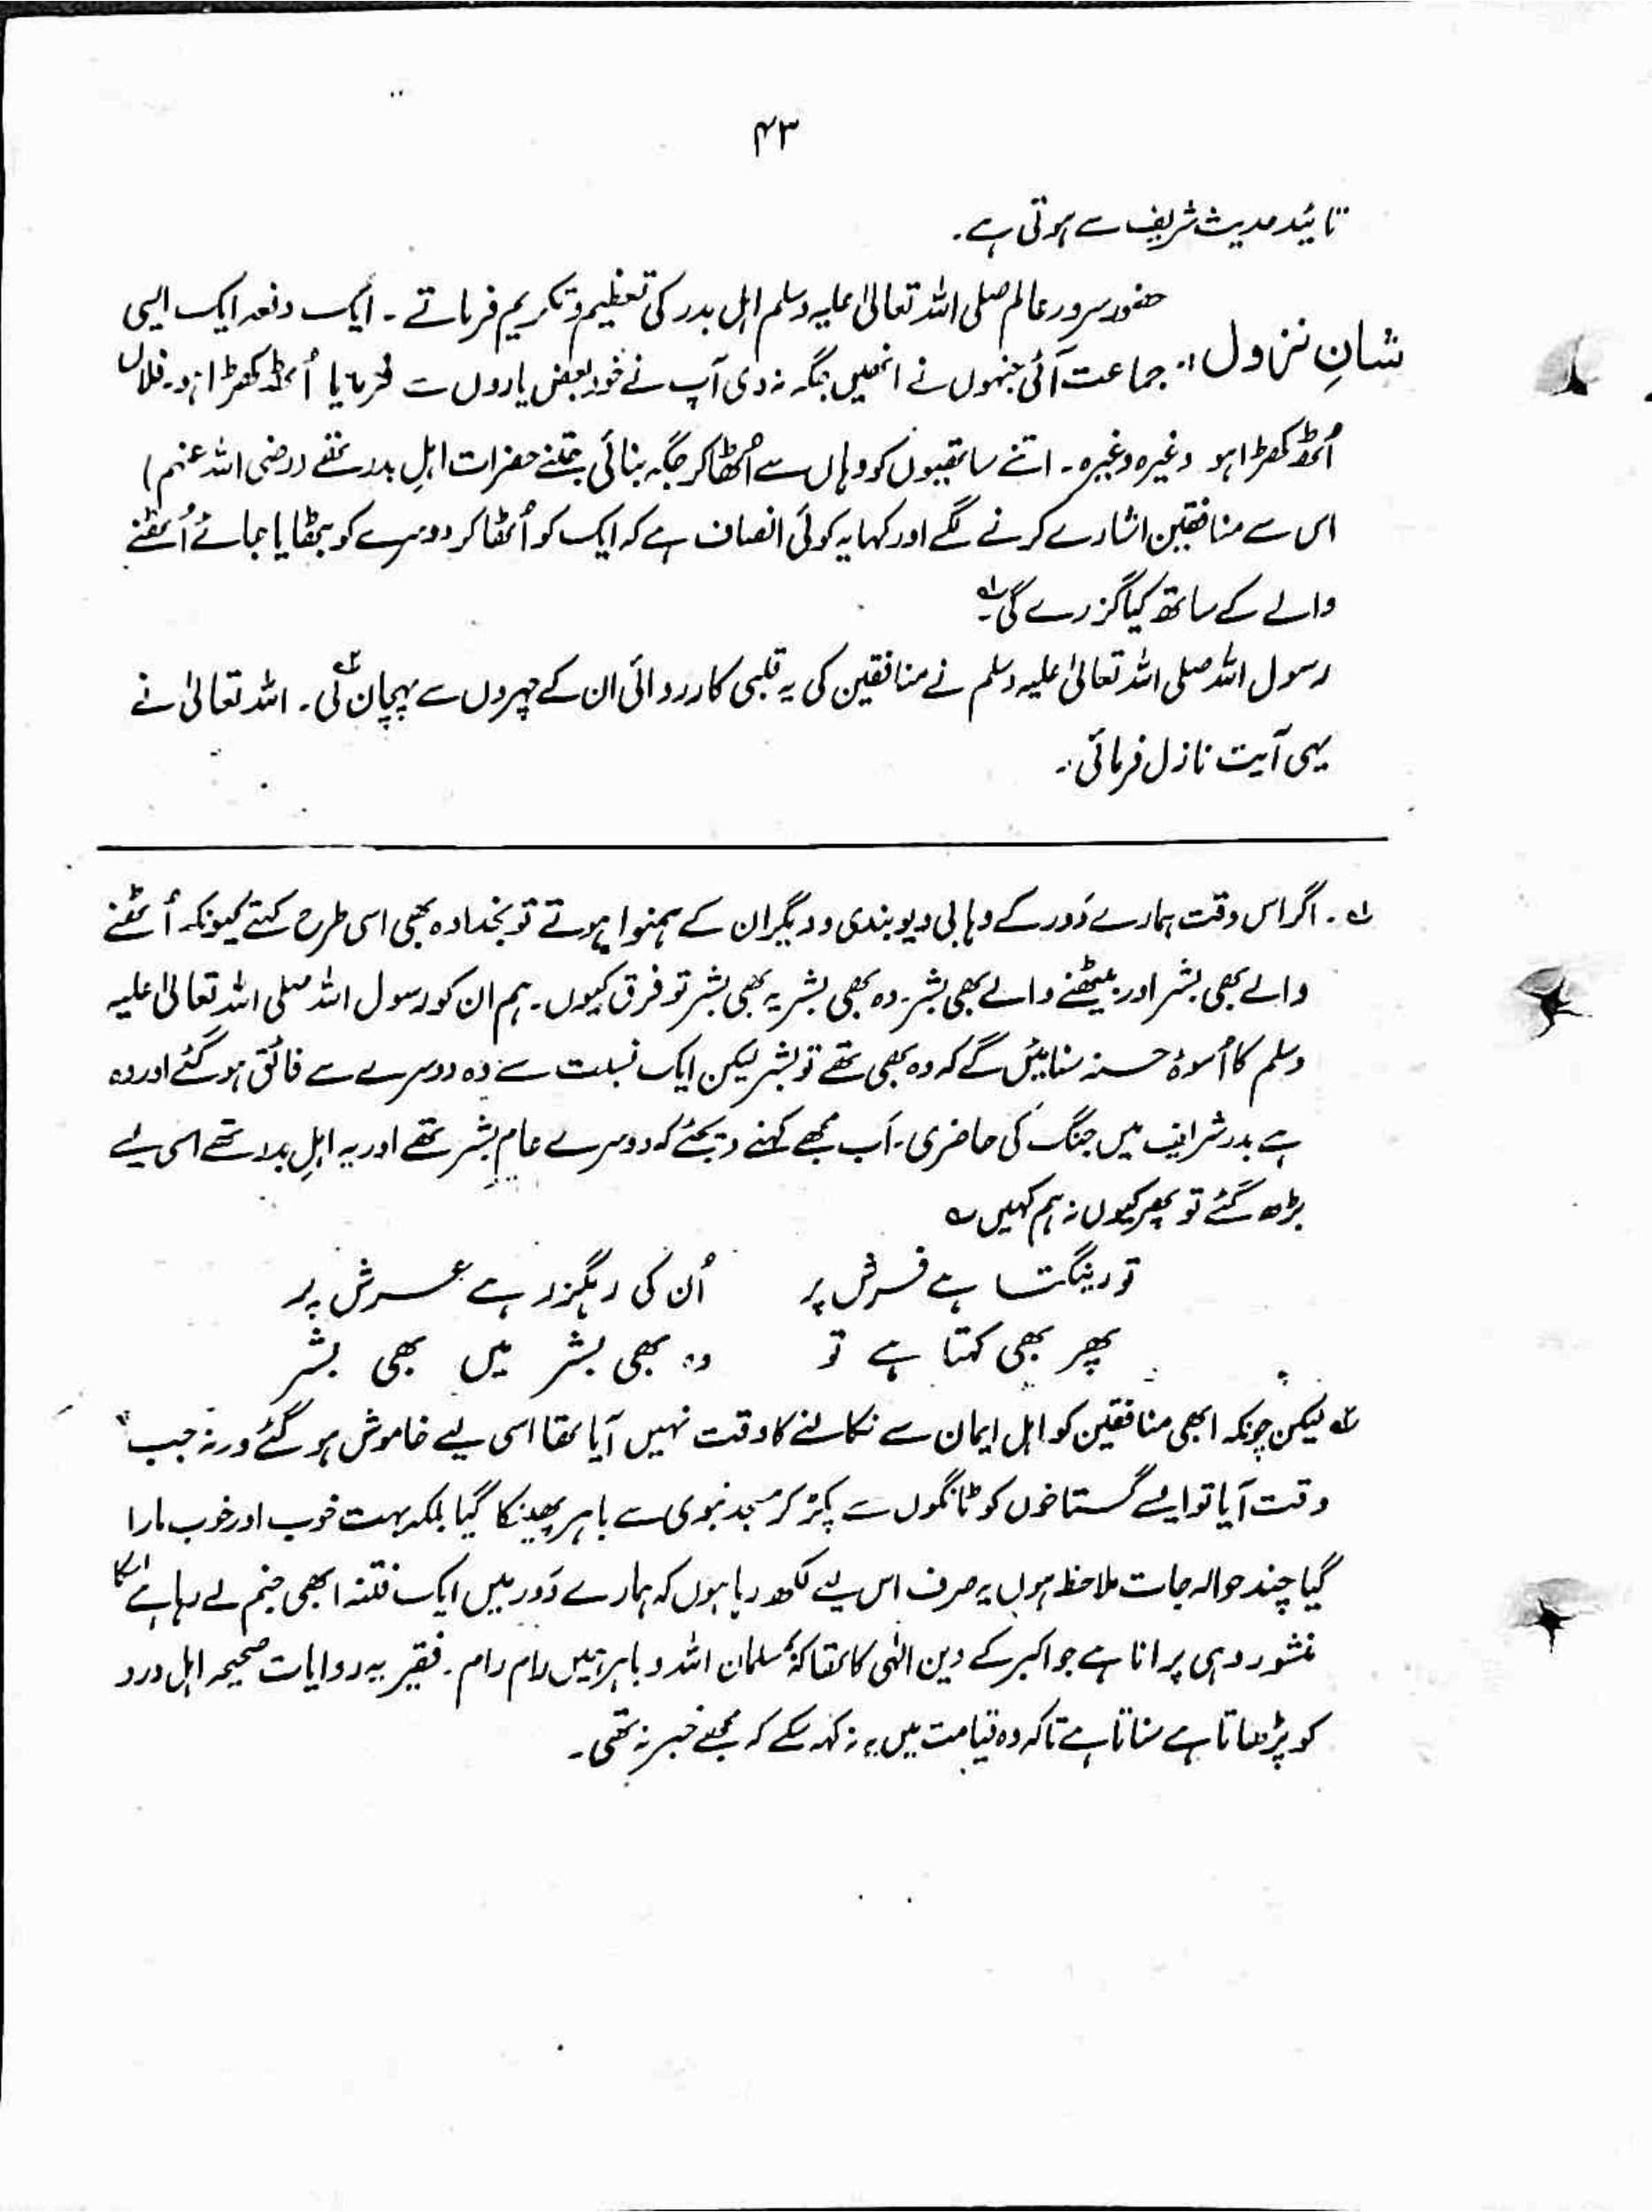 ۴۳
تائید حدیث شریف سے ہوتی ہے۔
حضور سرور عالم صلی اللہ تعالیٰ علیہ وسلم اہل بدر کی تعظیم و تکریم فرماتے۔ ایک دفعہ ایک ایسی
شانِ نزول:۔ جماعت آئی جنہوں نے انھیں جگہ نہ دی آپ نے خود بعض یاروں سے فرمایا اُٹھ کھڑا ہو۔ فلاں
اُٹھ کھڑا ہو وغیرہ وغیرہ۔ اتنے ساتھیوں کو وہاں سے اُٹھا کر جگہ بنائی جتنے حضرات اہلِ بدر تھے (رضی اللہ عنہم)
اس سے منافقین اشارے کرنے لگے اور کہا یہ کوئی انصاف ہے کہ ایک کو اُٹھا کر دوسرے کو بٹھایا جائے اُٹھنے
والے کے ساتھ کیا گزرے گی۔ لہ
رسول اللہ صلی اللہ تعالیٰ علیہ وسلم نے منافقین کی یہ قلبی کارروائی ان کے چہروں سے پہچان لی۔ اللہ تعالیٰ نے
یہی آیت نازل فرمائی۔
لہ۔ اگر اس وقت ہمارے دَور کے وہابی دیوبندی و دیگر ان کے ہمنوا ہوتے تو بخدا وہ بھی اسی طرح کہتے کیونکہ اُٹھنے
والے بھی بشر اور بیٹھنے والے بھی بشر۔ وہ بھی بشر یہ بھی بشر تو فرق کیوں۔ ہم ان کو رسول اللہ صلی اللہ تعالیٰ علیہ
وسلم کا اُسوۂ حسنہ سنائیں گے کہ وہ بھی تھے تو بشر لیکن ایک نسبت سے وہ دوسرے سے فائق ہو گئے اور وہ
ہے بدر شریف میں جنگ کی حاضری۔ اَب مجھے کہنے دیجئے کہ دوسرے عام بشر تھے اور یہ اہلِ بدر تھے اسی لیے
بڑھ گئے تو پھر کیوں نہ ہم کہیں ؎
تو رینگتا ہے فرش پر اُن کی رہگزر ہے عرش پر
پھر بھی کہتا ہے تو وہ بھی بشر میں بھی بشر
۲ہ لیکن چونکہ ابھی منافقین کو اہل ایمان سے نکالنے کا وقت نہیں آیا تھا اسی لیے خاموش ہو گئے ورنہ جب
وقت آیا تو ایسے گستاخوں کو ٹانگوں سے پکڑ کر مسجد نبوی سے باہر پھینکا گیا بلکہ بہت خوب اور خوب مارا
گیا چند حوالہ جات ملاحظہ ہوں یہ صرف اس لیے لکھ رہا ہوں کہ ہمارے دَور میں ایک فتنہ ابھی جنم لے رہا ہے اسکا
منشور وہی پرانا ہے جو اکبر کے دین الٰہی کا تھا کہ مسلمان اللہ و باہر میں رام رام۔ فقیر یہ روایات صحیحہ اہل درد
کو پڑھاتا ہے سناتا ہے تاکہ وہ قیامت میں یہ نہ کہہ سکے کہ مجھے خبر نہ تھی۔